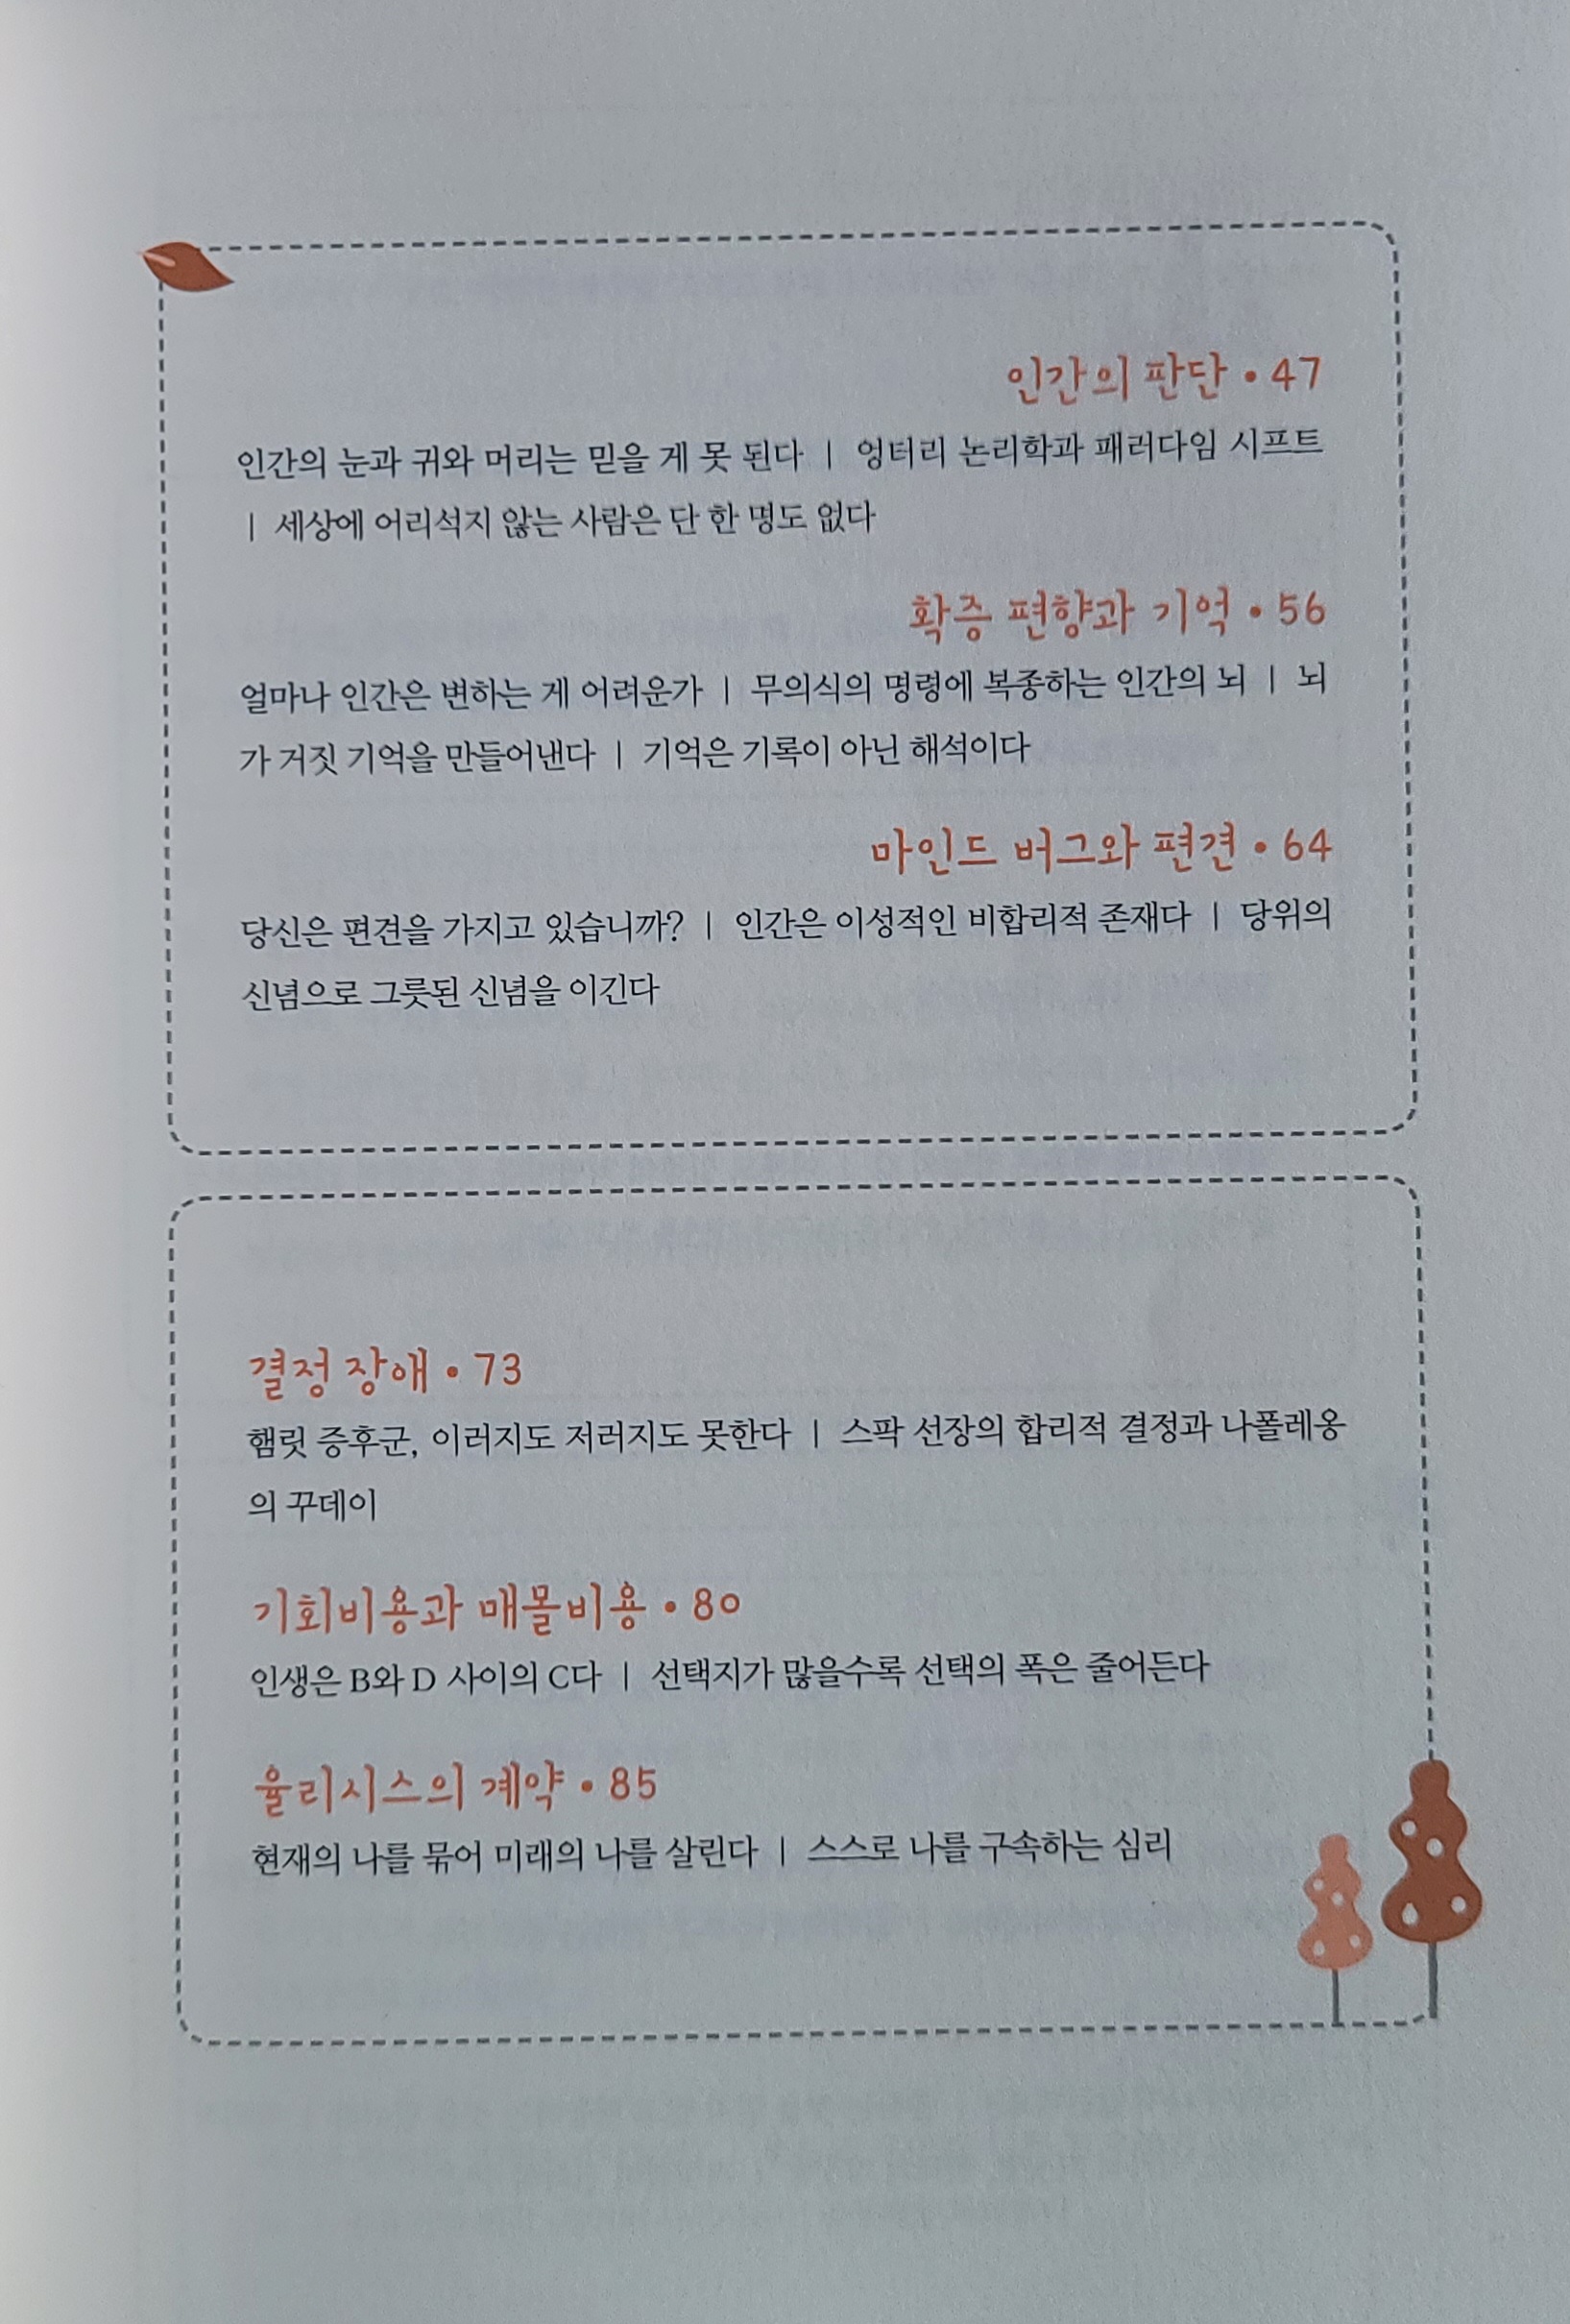 인간의 판단 • 47
인간의 눈과 귀와 머리는 믿을 게 못 된다 | 엉터리 논리학과 패러다임 시프트
| 세상에 어리석지 않는 사람은 단 한 명도 없다
확증 편향과 기억 • 56
얼마나 인간은 변하는 게 어려운가 | 무의식의 명령에 복종하는 인간의 뇌 | 뇌
가 거짓 기억을 만들어낸다 | 기억은 기록이 아닌 해석이다
마인드 버그와 편견 • 64
당신은 편견을 가지고 있습니까? | 인간은 이성적인 비합리적 존재다 | 당위의
신념으로 그릇된 신념을 이긴다
결정 장애 • 73
햄릿 증후군, 이러지도 저러지도 못한다 | 스팍 선장의 합리적 결정과 나폴레옹
의 꾸데이
기회비용과 매몰비용 • 80
인생은 B와 D 사이의 C다 | 선택지가 많을수록 선택의 폭은 줄어든다
율리시스의 계약 • 85
현재의 나를 묶어 미래의 나를 살린다 | 스스로 나를 구속하는 심리